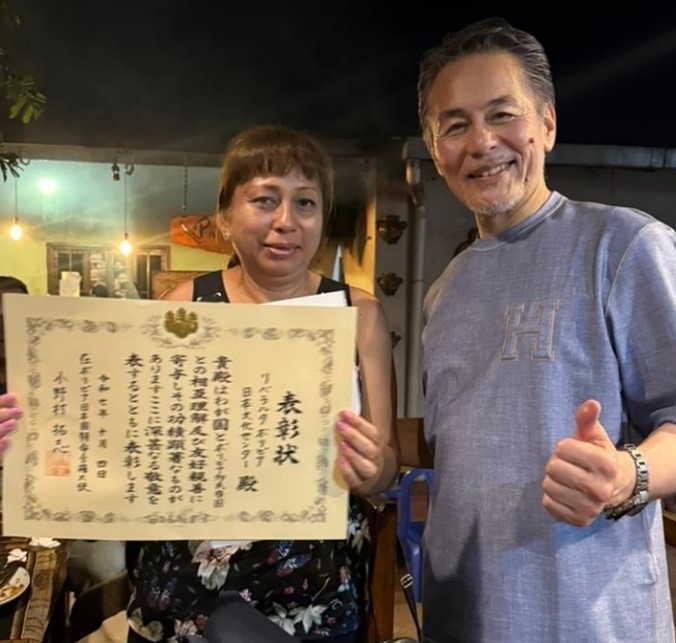 表彰状
リベラルタ ボリビア
日本文化センター 殿
貴殿はわが国とボリビア多民族国
との相互理解及び友好親善に
寄与しその功績顕著なものが
ありますここに深甚なる敬意を
表するとともに表彰します
令和七年十月四日
在ボリビア日本国特命全権大使
小野村拓志
H